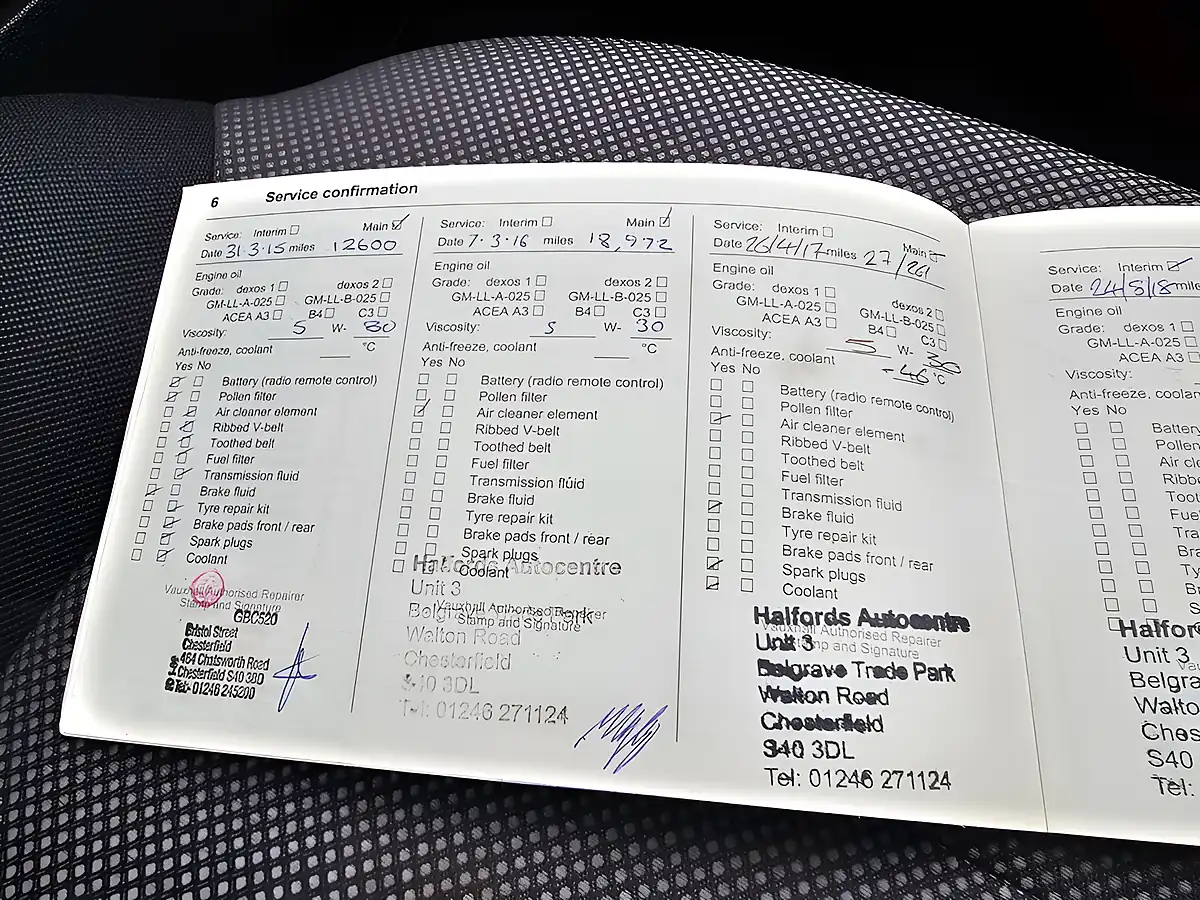 6 Service confirmation
Service: Interim Main
Date 31·3·15 miles 12600
Engine oil
Grade: dexos 1 dexos 2
GM-LL-A-025 GM-LL-B-025
ACEA A3 B4 C3
Viscosity: 5 W- 30
Anti-freeze, coolant °C
Yes No
Battery (radio remote control)
Pollen filter
Air cleaner element
Ribbed V-belt
Toothed belt
Fuel filter
Transmission fluid
Brake fluid
Tyre repair kit
Brake pads front / rear
Spark plugs
Coolant
Vauxhall Authorised Repairer
Stamp and Signature
GBC520
Bristol Street
Chesterfield
464 Chatsworth Road
Chesterfield S40 3BD
Tel: 01246 245200
Service: Interim Main
Date 7·3·16 miles 18,972
Engine oil
Grade: dexos 1 dexos 2
GM-LL-A-025 GM-LL-B-025
ACEA A3 B4 C3
Viscosity: 5 W- 30
Anti-freeze, coolant °C
Yes No
Battery (radio remote control)
Pollen filter
Air cleaner element
Ribbed V-belt
Toothed belt
Fuel filter
Transmission fluid
Brake fluid
Tyre repair kit
Brake pads front / rear
Spark plugs
Coolant
Halfords Autocentre
Unit 3
Vauxhall Authorised Repairer
Stamp and Signature
Belgrave Trade Park
Walton Road
Chesterfield
S40 3DL
Tel: 01246 271124
Service: Interim Main
Date 26/4/17 miles 27/261
Engine oil
Grade: dexos 1 dexos 2
GM-LL-A-025 GM-LL-B-025
ACEA A3 B4 C3
Viscosity: 5 W- 30
Anti-freeze, coolant -46 °C
Yes No
Battery (radio remote control)
Pollen filter
Air cleaner element
Ribbed V-belt
Toothed belt
Fuel filter
Transmission fluid
Brake fluid
Tyre repair kit
Brake pads front / rear
Spark plugs
Coolant
Halfords Autocentre
Vauxhall Authorised Repairer
Stamp and Signature
Unit 3
Belgrave Trade Park
Walton Road
Chesterfield
S40 3DL
Tel: 01246 271124
Service: Interim
Date 24/5/18 mile
Engine oil
Grade: dexos 1
GM-LL-A-025
ACEA A3
Viscosity:
Anti-freeze, coolan
Yes No
Battery
Pollen
Air cle
Ribb
Toot
Fue
Tra
Bra
Ty
Br
S
Halfor
Unit 3
Belgra
Walto
Ches
S40
Tel: